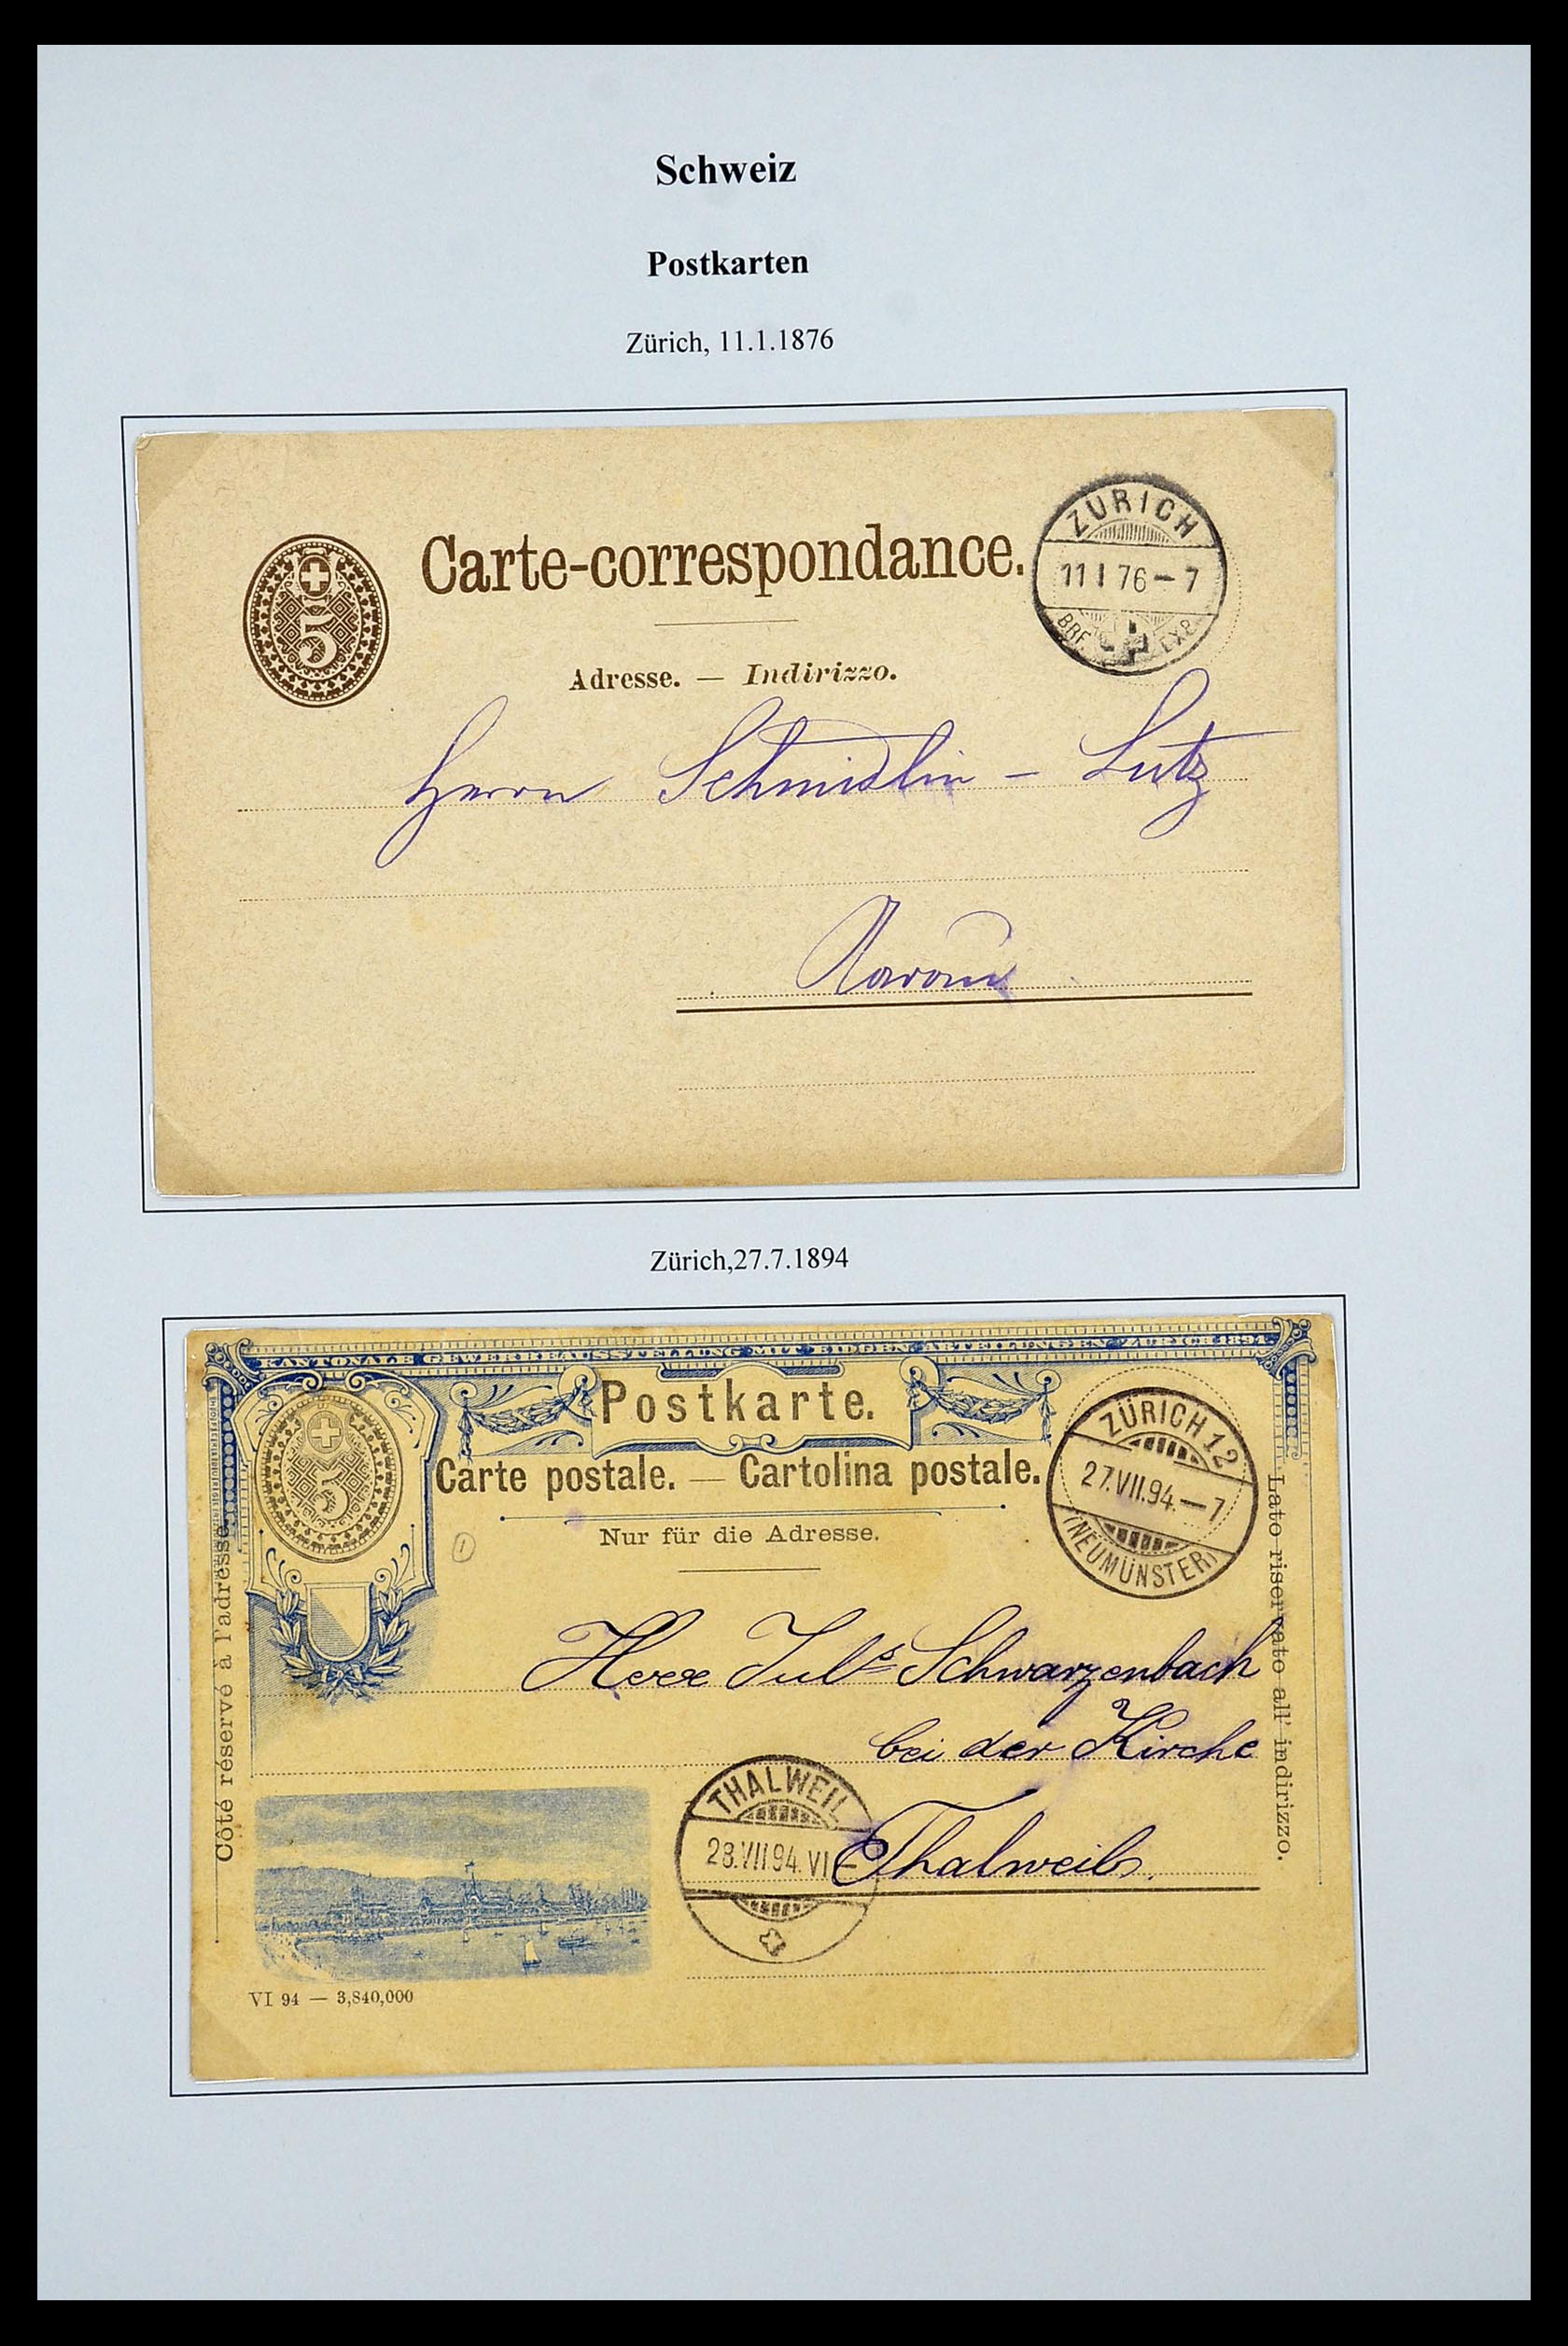 Schweiz
Postkarten
Zürich, 11.1.1876
5
Carte-correspondance.
ZÜRICH
11 I 76 – 7
BRF EXP.
Adresse. — Indirizzo.
Herrn Schmidlin – Lutz
Aarau
Zürich,27.7.1894
KANTONALE GEWERBEAUSSTELLUNG MIT EIDGEN. ABTEILUNGEN ZÜRICH 1894
5
Postkarte.
Carte postale. — Cartolina postale.
Nur für die Adresse.
ZÜRICH 12
27.VII.94.–7
(NEUMÜNSTER)
1
Côté réservé à l'adresse.
Lato riservato all' indirizzo.
Herr Jul<sup>s</sup> Schwarzenbach
bei der Kirche
Thalweil
THALWEIL
28.VII.94.VI–
VI 94 — 3,840,000